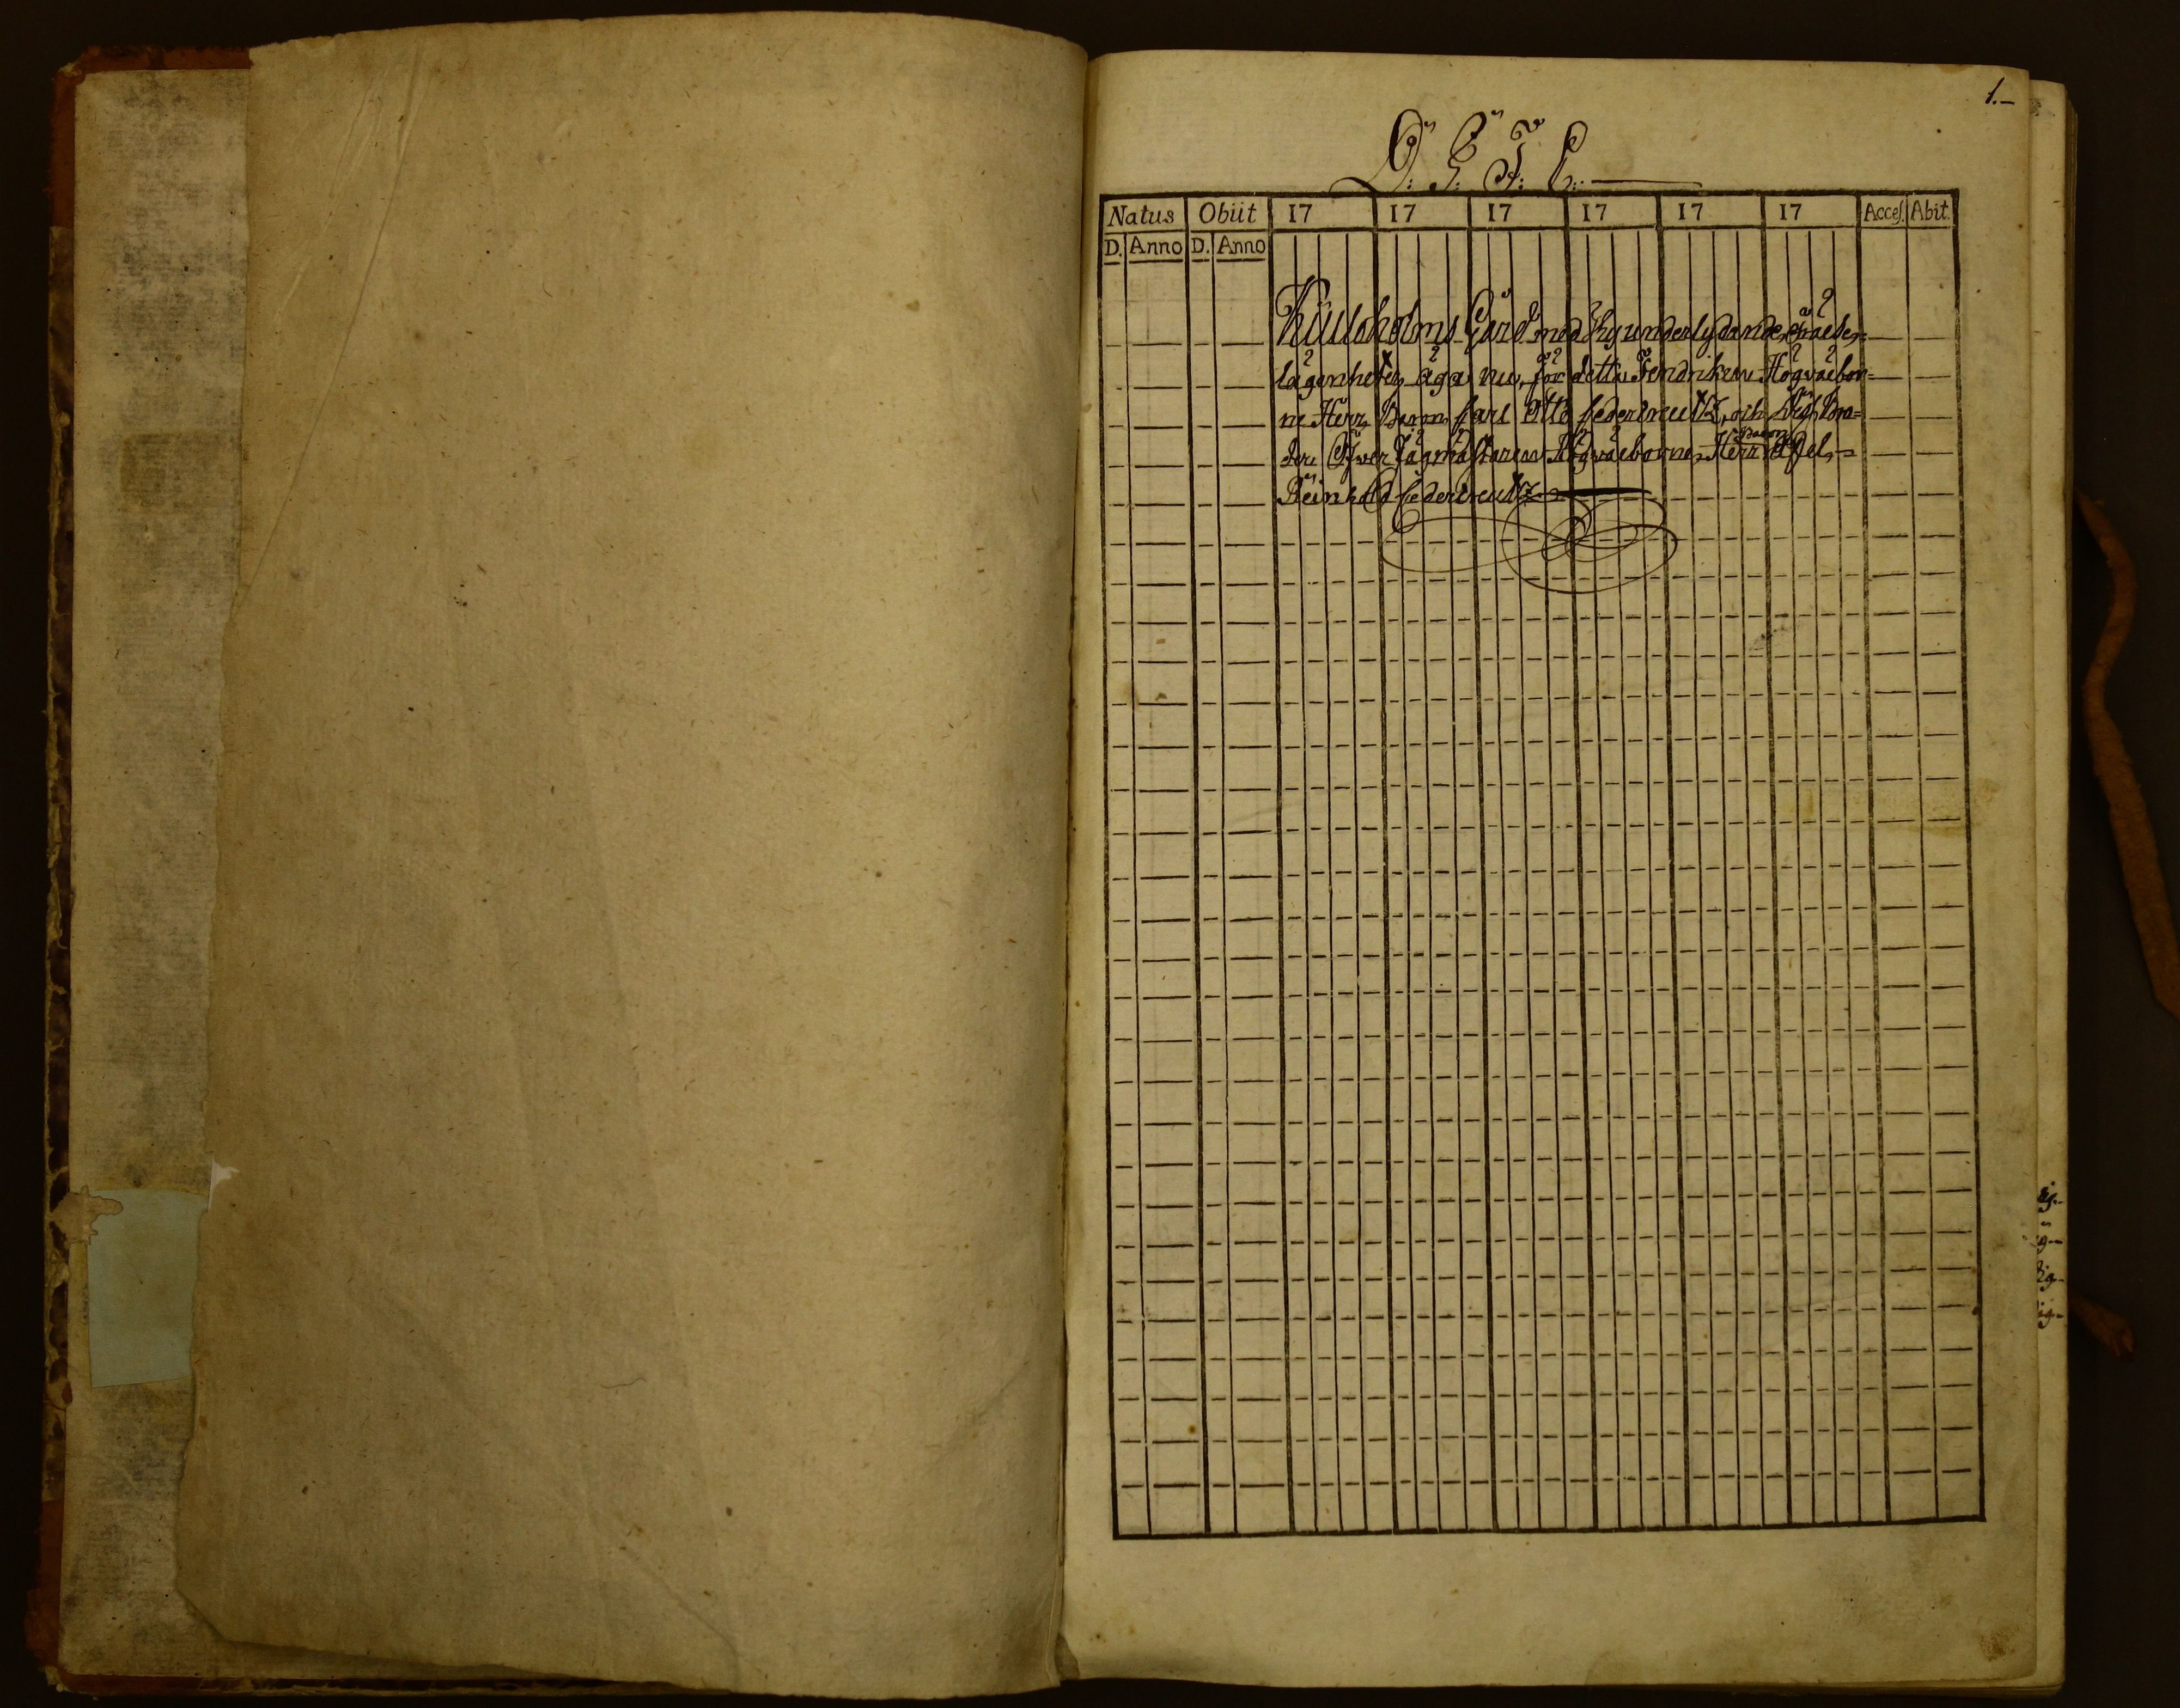 1.
D: G: F: C:
Natus Obiit 17 17 17 17 17 17 Acces. Abit.
D. Anno D. Anno
Kiuloholms Gård med thy underlydande
lägenheter äga nu, för detta Fendriken Högvälbor=
ne Herr Baron Carl Otto Cedercreutz, och
Öfwer Jägmästaren Högvälborne Herr Baron Axel
Reinhold Cedercreutz